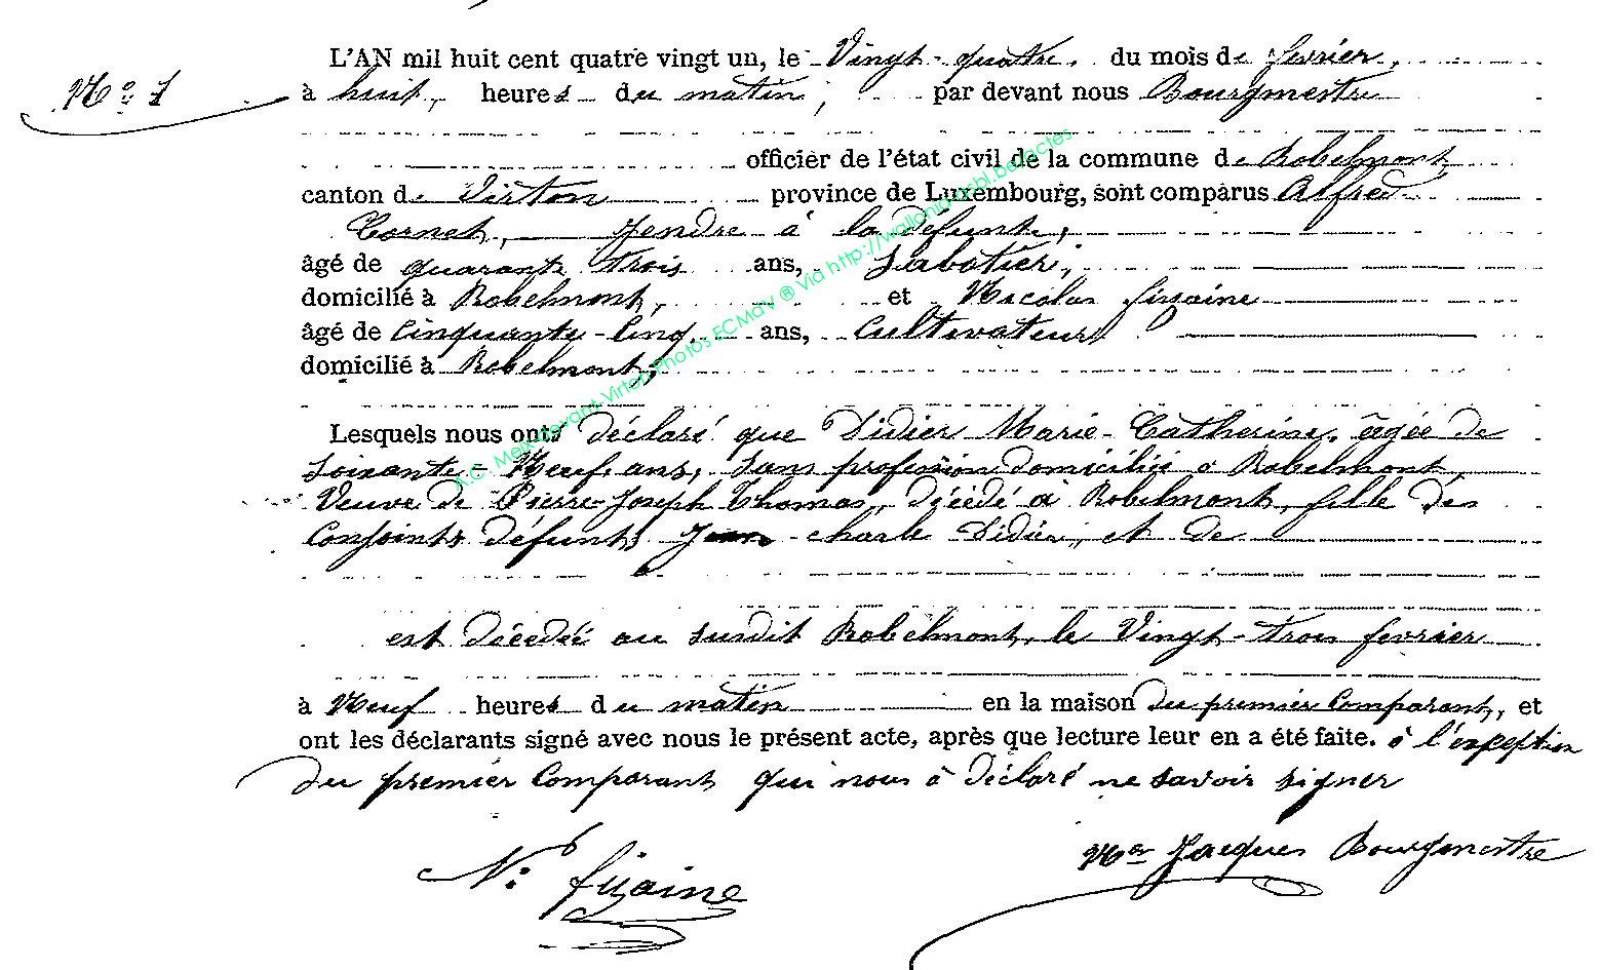 N° 1
L'AN mil huit cent quatre vingt un, le Vingt-quatre, du mois de fevrier,
à huit, heures du matin, par devant nous Bourgmestre
officier de l'état civil de la commune de Robelmont,
canton de Virton province de Luxembourg, sont comparus Alfred
Cornet, Jendre à la défunte,
âgé de quarante trois ans, Sabotier,
domicilié à Robelmont, et Nicolas fizaine
âgé de Cinquante-Cinq ans, Cultivateur
domicilié à Robelmont;
Lesquels nous ont déclaré que Didier Marie-Catherine, âgée de
Soixante-Neuf ans, Sans profession domiciliée à Robelmont,
Veuve de Pierre-Joseph Thomas, décédé à Robelmont, fille des
Conjoints défunts Jean-charle Didier, et de
est décédée au susdit Robelmont, le Vingt-trois fevrier
à Neuf heures du matin en la maison du premier Comparant, et
ont les déclarants signé avec nous le présent acte, après que lecture leur en a été faite. à l'exception
du premier Comparant qui nous à déclaré ne savoir signer
N: fizaine
Jacques Bourgmestre
A.C. Meix-devant-Virton Photos ECMdV ® Via http://wallonia-asbl.be/actes